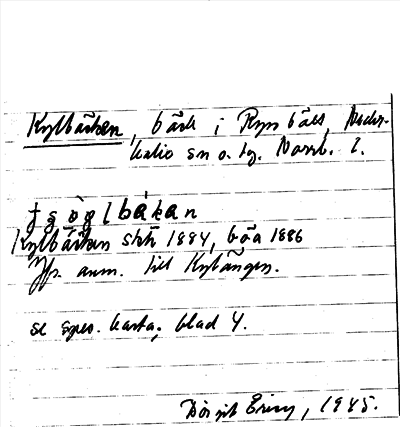 Kylbäcken, bäck i Kypsbäck, Neder-
kalix sn o. tg. Norrb. l.
Kylbäcken skh 1884, böa 1886
Jfr. anm. till Kylängen.
se spec. karta, blad 4.
Birgit Ericz, 1945.